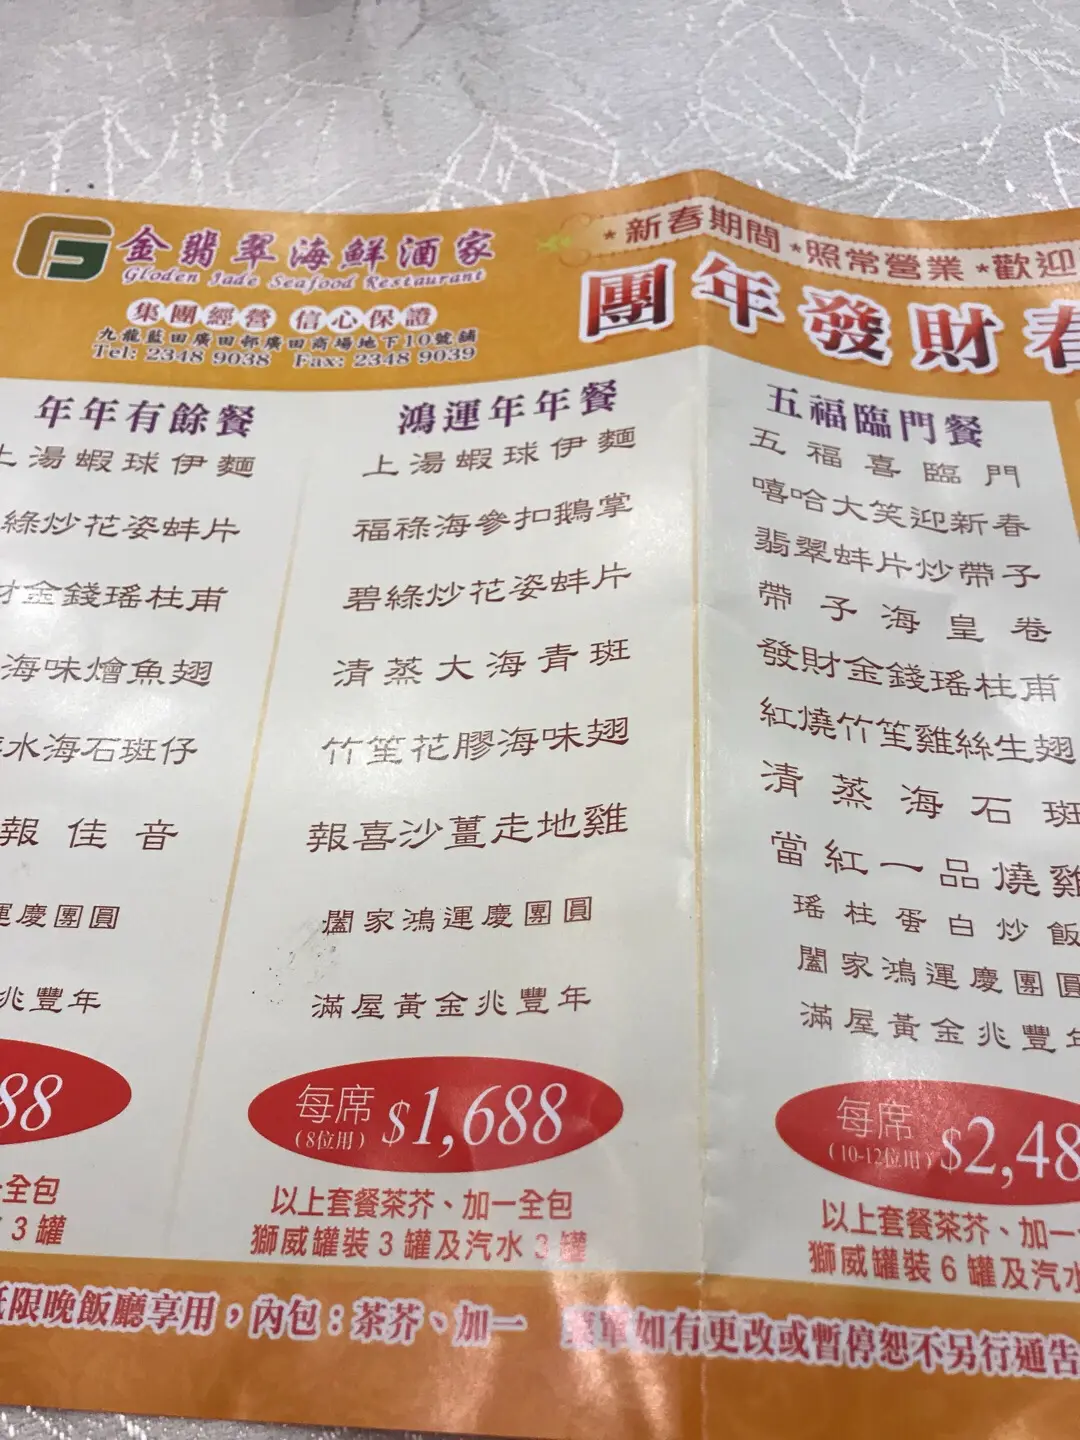 金翡翠海鮮酒家
Gloden Jade Seafood Restaurant
集團經營 信心保證
九龍藍田廣田邨廣田商場地下10號舖
Tel: 2348 9038 Fax: 2348 9039
*新春期間*照常營業*歡迎
團年發財春
年年有餘餐
上湯蝦球伊麵
綠炒花姿蚌片
財金錢瑤柱甫
海味燴魚翅
水海石斑仔
報佳音
運慶團圓
兆豐年
88
全包
3罐
鴻運年年餐
上湯蝦球伊麵
福祿海參扣鵝掌
碧綠炒花姿蚌片
清蒸大海青斑
竹笙花膠海味翅
報喜沙薑走地雞
闔家鴻運慶團圓
滿屋黃金兆豐年
每席
(8位用)
$1,688
以上套餐茶芥、加一全包
獅威罐裝3罐及汽水3罐
五福臨門餐
五福喜臨門
嘻哈大笑迎新春
翡翠蚌片炒帶子
帶子海皇卷
發財金錢瑤柱甫
紅燒竹笙雞絲生翅
清蒸海石斑
當紅一品燒雞
瑤柱蛋白炒飯
闔家鴻運慶團圓
滿屋黃金兆豐年
每席
(10-12位用)
$2,48
以上套餐茶芥、加一
獅威罐裝6罐及汽水
限晚飯廳享用，內包：茶芥、加一 菜單如有更改或暫停恕不另行通告